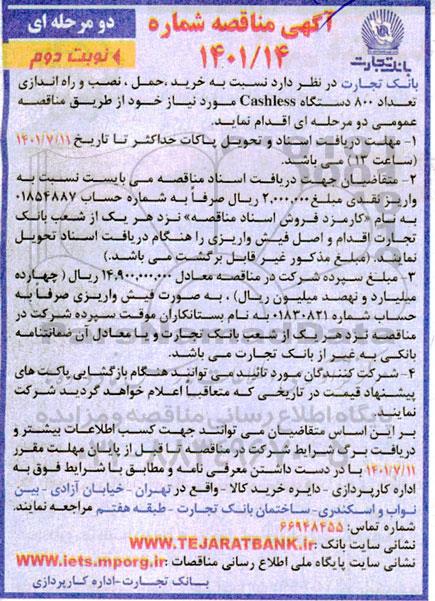 آگهی مناقصه شماره
۱۴۰۱/۱۴
دو مرحله ای
نوبت دوم
بانک تجارت
بانک تجارت در نظر دارد نسبت به خرید ،حمل ، نصب و راه اندازی
تعداد ۸۰۰ دستگاه Cashless مورد نیاز خود از طریق مناقصه
عمومی دو مرحله ای اقدام نماید.
۱- مهلت دریافت اسناد و تحویل پاکات حداکثر تا تاریخ ۱۴۰۱/۷/۱۱
(ساعت ۱۳) می باشد.
۲- متقاضیان جهت دریافت اسناد مناقصه می بایست نسبت به
واریز نقدی مبلغ ۲،۰۰۰،۰۰۰ ریال صرفاً به شماره حساب ۰۱۸۵۴۸۸۷
به نام «کارمزد فروش اسناد مناقصه» نزد هر یک از شعب بانک
تجارت اقدام و اصل فیش واریزی را هنگام دریافت اسناد تحویل
نمایند. (مبلغ مذکور غیر قابل برگشت می باشد.)
۳- مبلغ سپرده شرکت در مناقصه معادل ۱۴،۹۰۰،۰۰۰،۰۰۰ ریال ( چهارده
میلیارد و نهصد میلیون ریال) ، به صورت فیش واریزی صرفاً به
حساب شماره ۰۱۸۳۰۸۲۱ به نام بستانکاران موقت سپرده شرکت در
مناقصه نزد هر یک از شعب بانک تجارت و یا معادل آن ضمانتنامه
بانکی به غیر از بانک تجارت می باشد.
۴- شرکت کنندگان مورد تائید می توانند هنگام بازگشایی پاکت های
پیشنهاد قیمت در تاریخی که متعاقباً اعلام خواهد گردید شرکت
نمایند.
بر این اساس متقاضیان می توانند جهت کسب اطلاعات بیشتر و
دریافت برگ شرایط شرکت در مناقصه تا قبل از پایان مهلت مقرر
۱۴۰۱/۷/۱۱ با در دست داشتن معرفی نامه و مطابق با شرایط فوق به
اداره کارپردازی - دایره خرید کالا - واقع در تهران - خیابان آزادی - بین
نواب و اسکندری- ساختمان بانک تجارت - طبقه هفتم مراجعه نمایند.
شماره تماس: ۶۶۹۴۸۴۵۵
نشانی سایت بانک : WWW.TEJARATBANK.ir
نشانی سایت پایگاه ملی اطلاع رسانی مناقصات : www.iets.mporg.ir
بانک تجارت-اداره کارپردازی